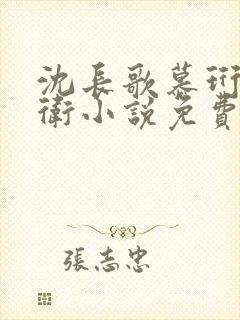 沈長歌慕珩
衛小說免費
張志忠